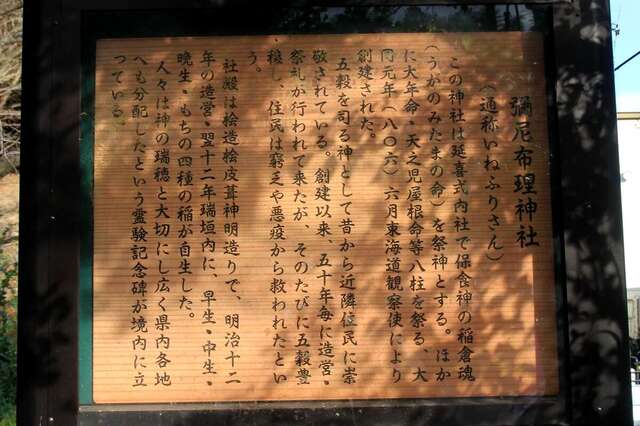 彌尼布理神社
(通称いねふりさん)
この神社は延喜式内社で保食神の稲倉魂
(うかのみたまの命)を祭神とする。ほか
に大年命・天之児屋根命等八柱を祭る、大
同元年(八〇六)六月東海道観察使により
創建された。
五穀を司る神として昔から近隣住民に崇
敬されている。創建以来、五十年毎に造営・
祭礼が行われて来たが、そのたびに五穀豊
穣し、住民は窮乏や悪疫から救われたとい
う。
社殿は桧造桧皮葺神明造りで、明治十二
年の造営・翌十二年瑞垣内に、早生・中生・
晩生・もちの四種の稲が自生した。
人々は神の瑞穂と大切にし広く県内各地
へも分配したという霊験記念碑が境内に立
っている。